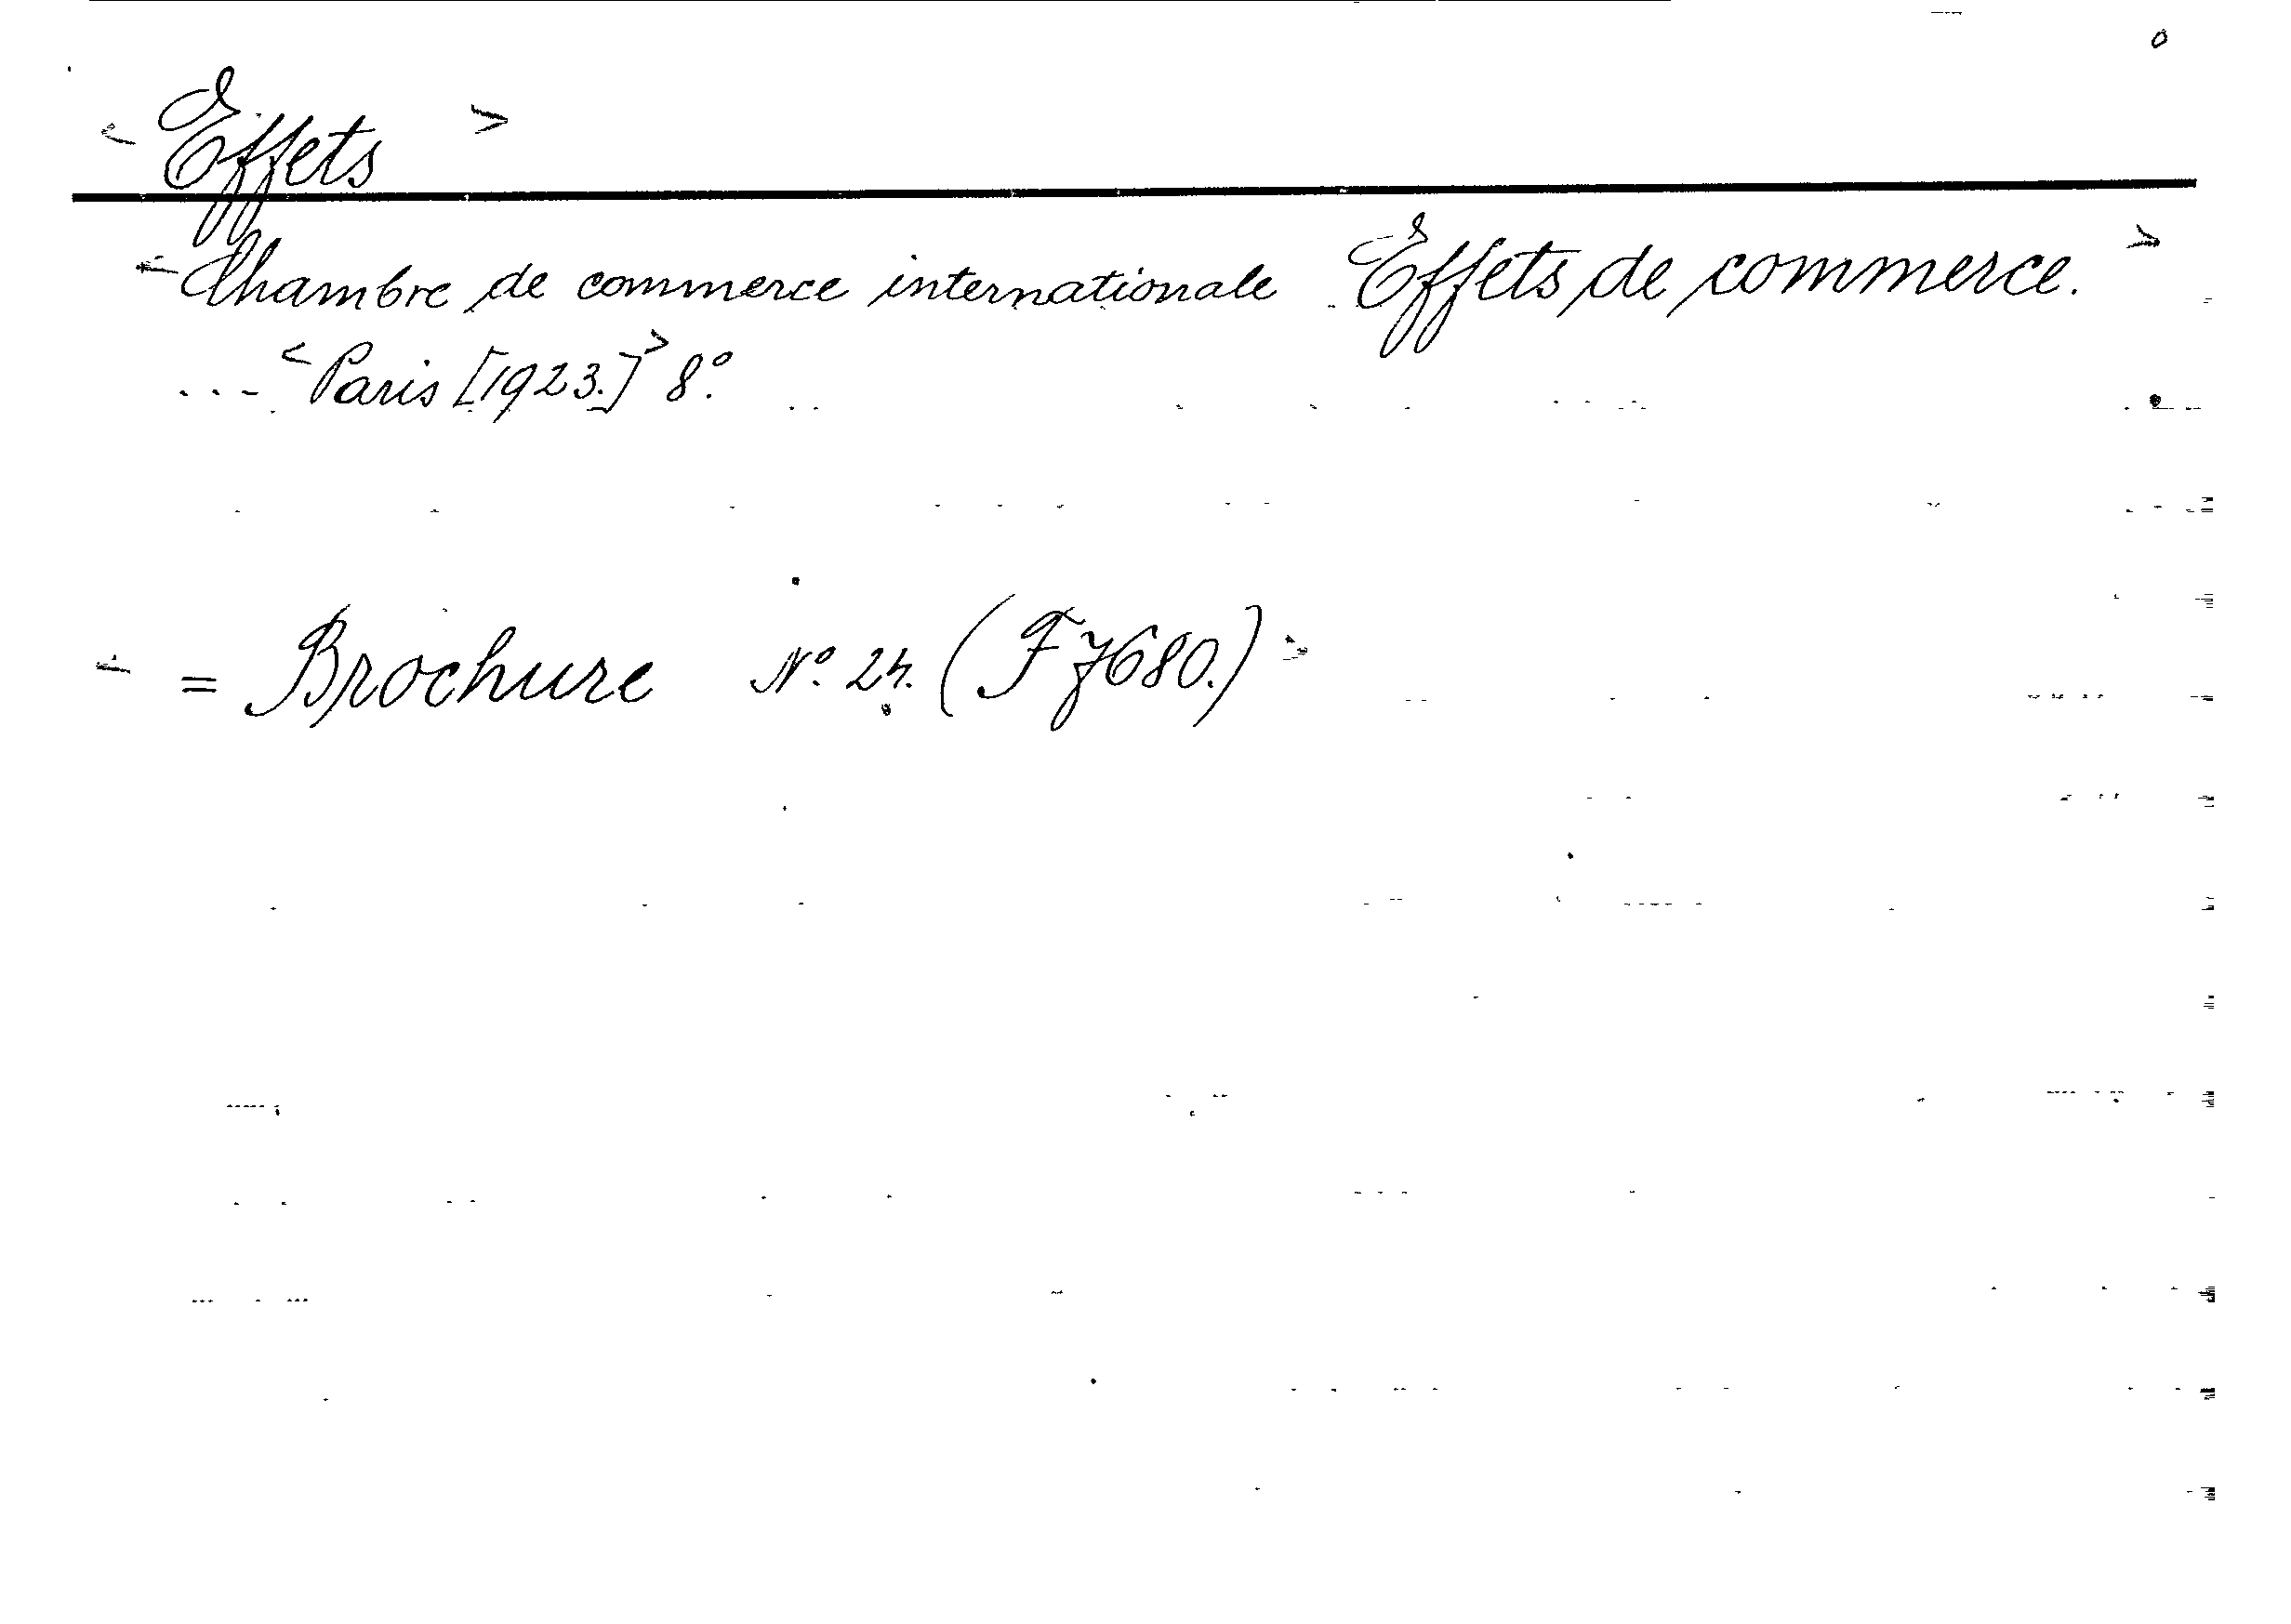 < Effets >
< Chambre de commerce internationale Effets de commerce. >
... < Paris [1923.] > 8º.
< = Brochure Nº. 24. (F 7680.) >